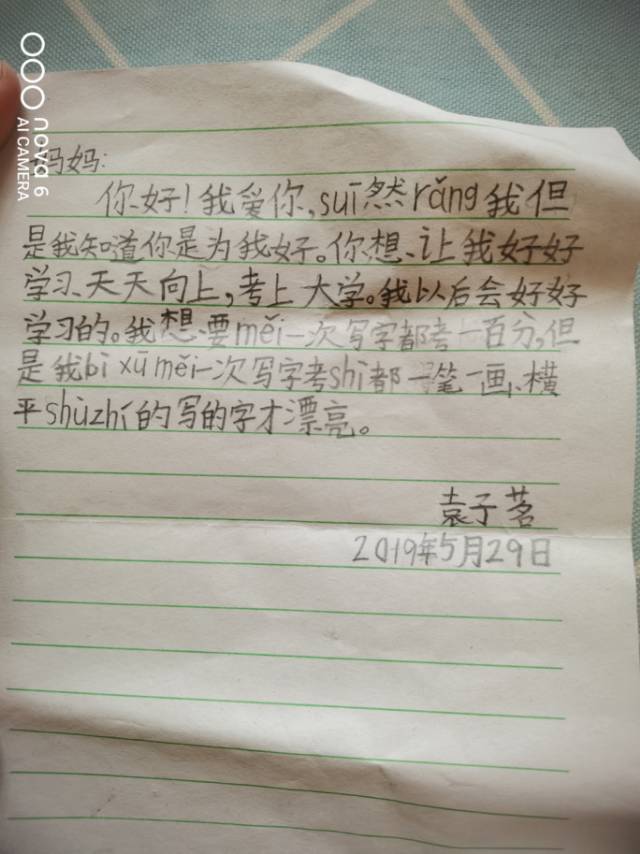 nova 6
AI CAMERA
妈妈:
你好!我爱你,suī然rǎng我但
是我知道你是为我好。你想、让我好好
学习、天天向上,考上大学。我以后会好好
学习的。我想要měi一次写字都考一百分,但
是我bì xū měi一次写字考shì都一笔一画、横
平shùzhí的写的字才漂亮。
袁子茗
2019年5月29日